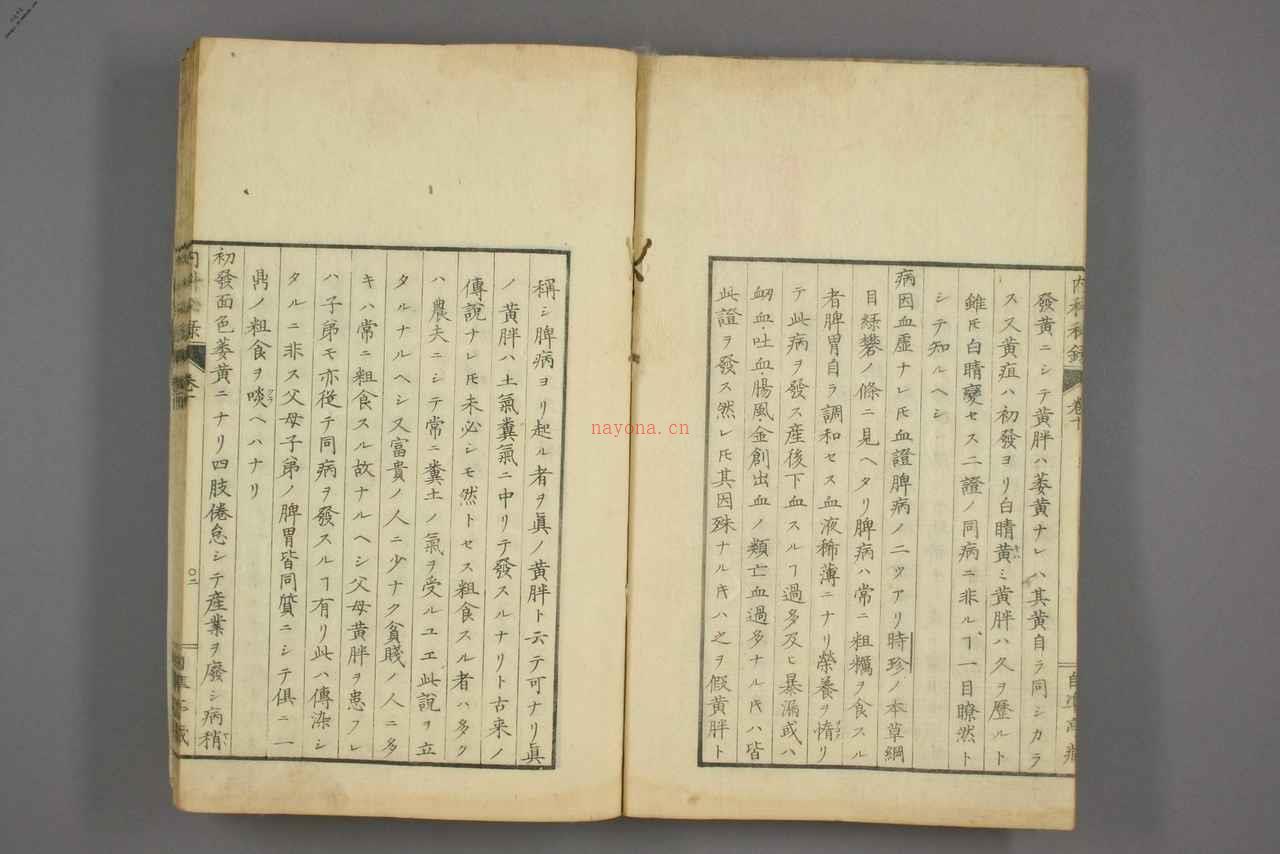 内科秘録 卷十
發黄ニシテ黄胖ハ萎黄ナレハ其黄自ラ同シカラ
スヌ黄疸ハ初發ヨリ白睛黄ミ黄胖ハ久ヲ歴ルト
雖𪜈白睛變セス二證ノ同病ニ非ルヿ一目瞭然ト
シテ知ルヘシ
病因血虚ナレ𪜈血證脾病ノ二ツアリ時珍ノ本草綱
目緑礬ノ條ニ見ヘタリ脾病ハ常ニ粗糲ヲ食スル
者脾胃自ラ調和セス血液稀薄ニナリ榮養ヲ惰リ
テ此病ヲ發ス産後下血スルヿ過多及ヒ暴漏或ハ
衂血・吐血・腸風・金創出血ノ類亡血過多ナル𪜈ハ皆
此證ヲ發ス然レ𪜈其因殊ナル𪜈ハ之ヲ假黄胖ト
稱シ脾病ヨリ起ル者ヲ眞ノ黄胖ト云テ可ナリ眞
ノ黄胖ハ土氣糞氣ニ中リテ發スルナリト古來ノ
傳説ナレ𪜈未必シモ然トセス粗食スル者ハ多ク
ハ農夫ニシテ常ニ糞土ノ氣ヲ受ルユエ此説ヲ立
タルナルヘシ又富貴ノ人ニ少ナク貧賤ノ人ニ多
キハ常ニ粗食スル故ナルヘシ父母黄胖ヲ患フレ
ハ子弟モ亦從テ同病ヲ發スルヿ有リ此ハ傳染シ
タルニ非ス父母子弟ノ脾胃皆同質ニシテ俱ニ一
鼎ノ粗食ヲ啖ヘハナリ
初發面色萎黄ニナリ四肢倦怠シテ産業ヲ廢シ病稍
卷十
〇二
nayona.cn